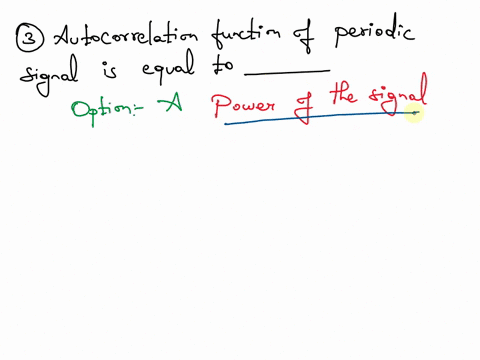 ③ Autocorrelation function of periodic
signal is equal to ________
Option:- A Power of the signal